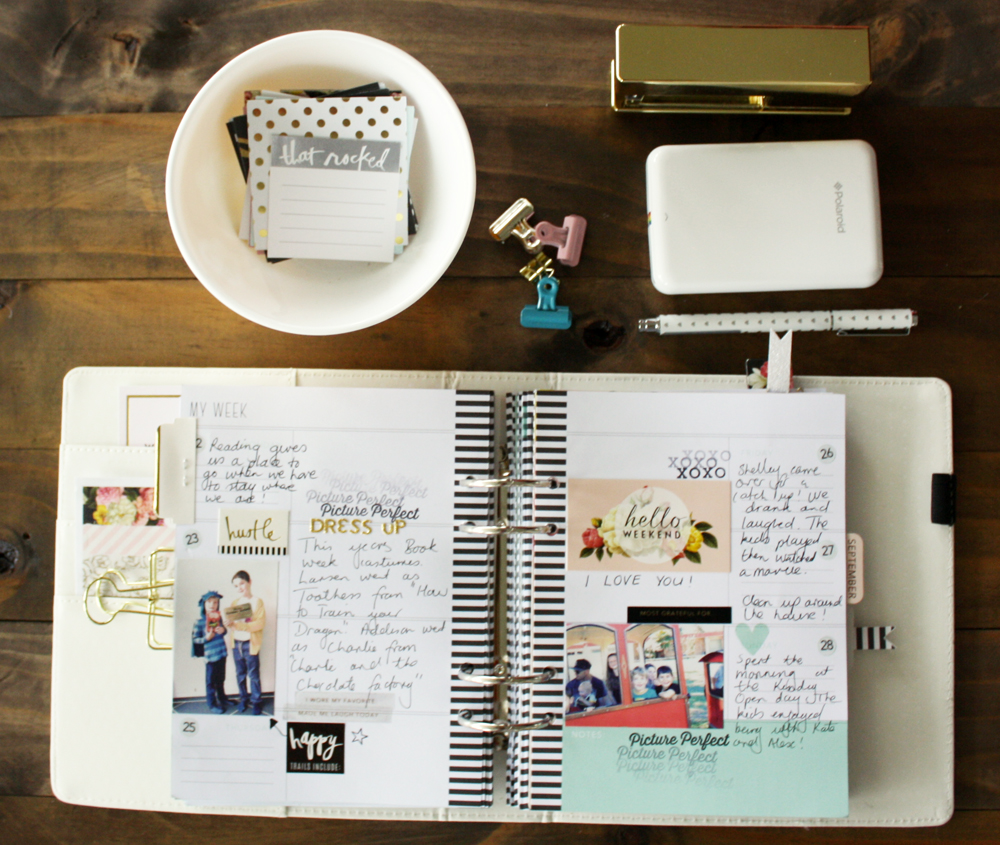 that rocked
Polaroid
MY WEEK
2
Reading gives
us a place to
go when we have
to stay where
we are!
23
hustle
Picture Perfect
Picture Perfect
Picture Perfect
DRESS UP
This years Book
Week costumes.
Lawsen went as
Toothess from "How
to Train your
Dragon". Addison went
as Charlie from
"Charlie and the
Chocolate factory"
I WORE MY FAVORITE
MADE ME LAUGH TODAY
25
happy
TRAILS INCLUDE:
XOXO
XOXO
XOXO
hello
WEEKEND
I LOVE YOU!
MOST GRATEFUL FOR
NOTES
Picture Perfect
Picture Perfect
Picture Perfect
26
Shelley came
over for a
catch up! We
drank and
laughed. The
kids played
then watched
a movie.
27
Clean up around
the house!
28
Spent the
morning at
the Kindy
Open day. The
kids enjoyed
being with Kate
and Alex!
SEPTEMBER